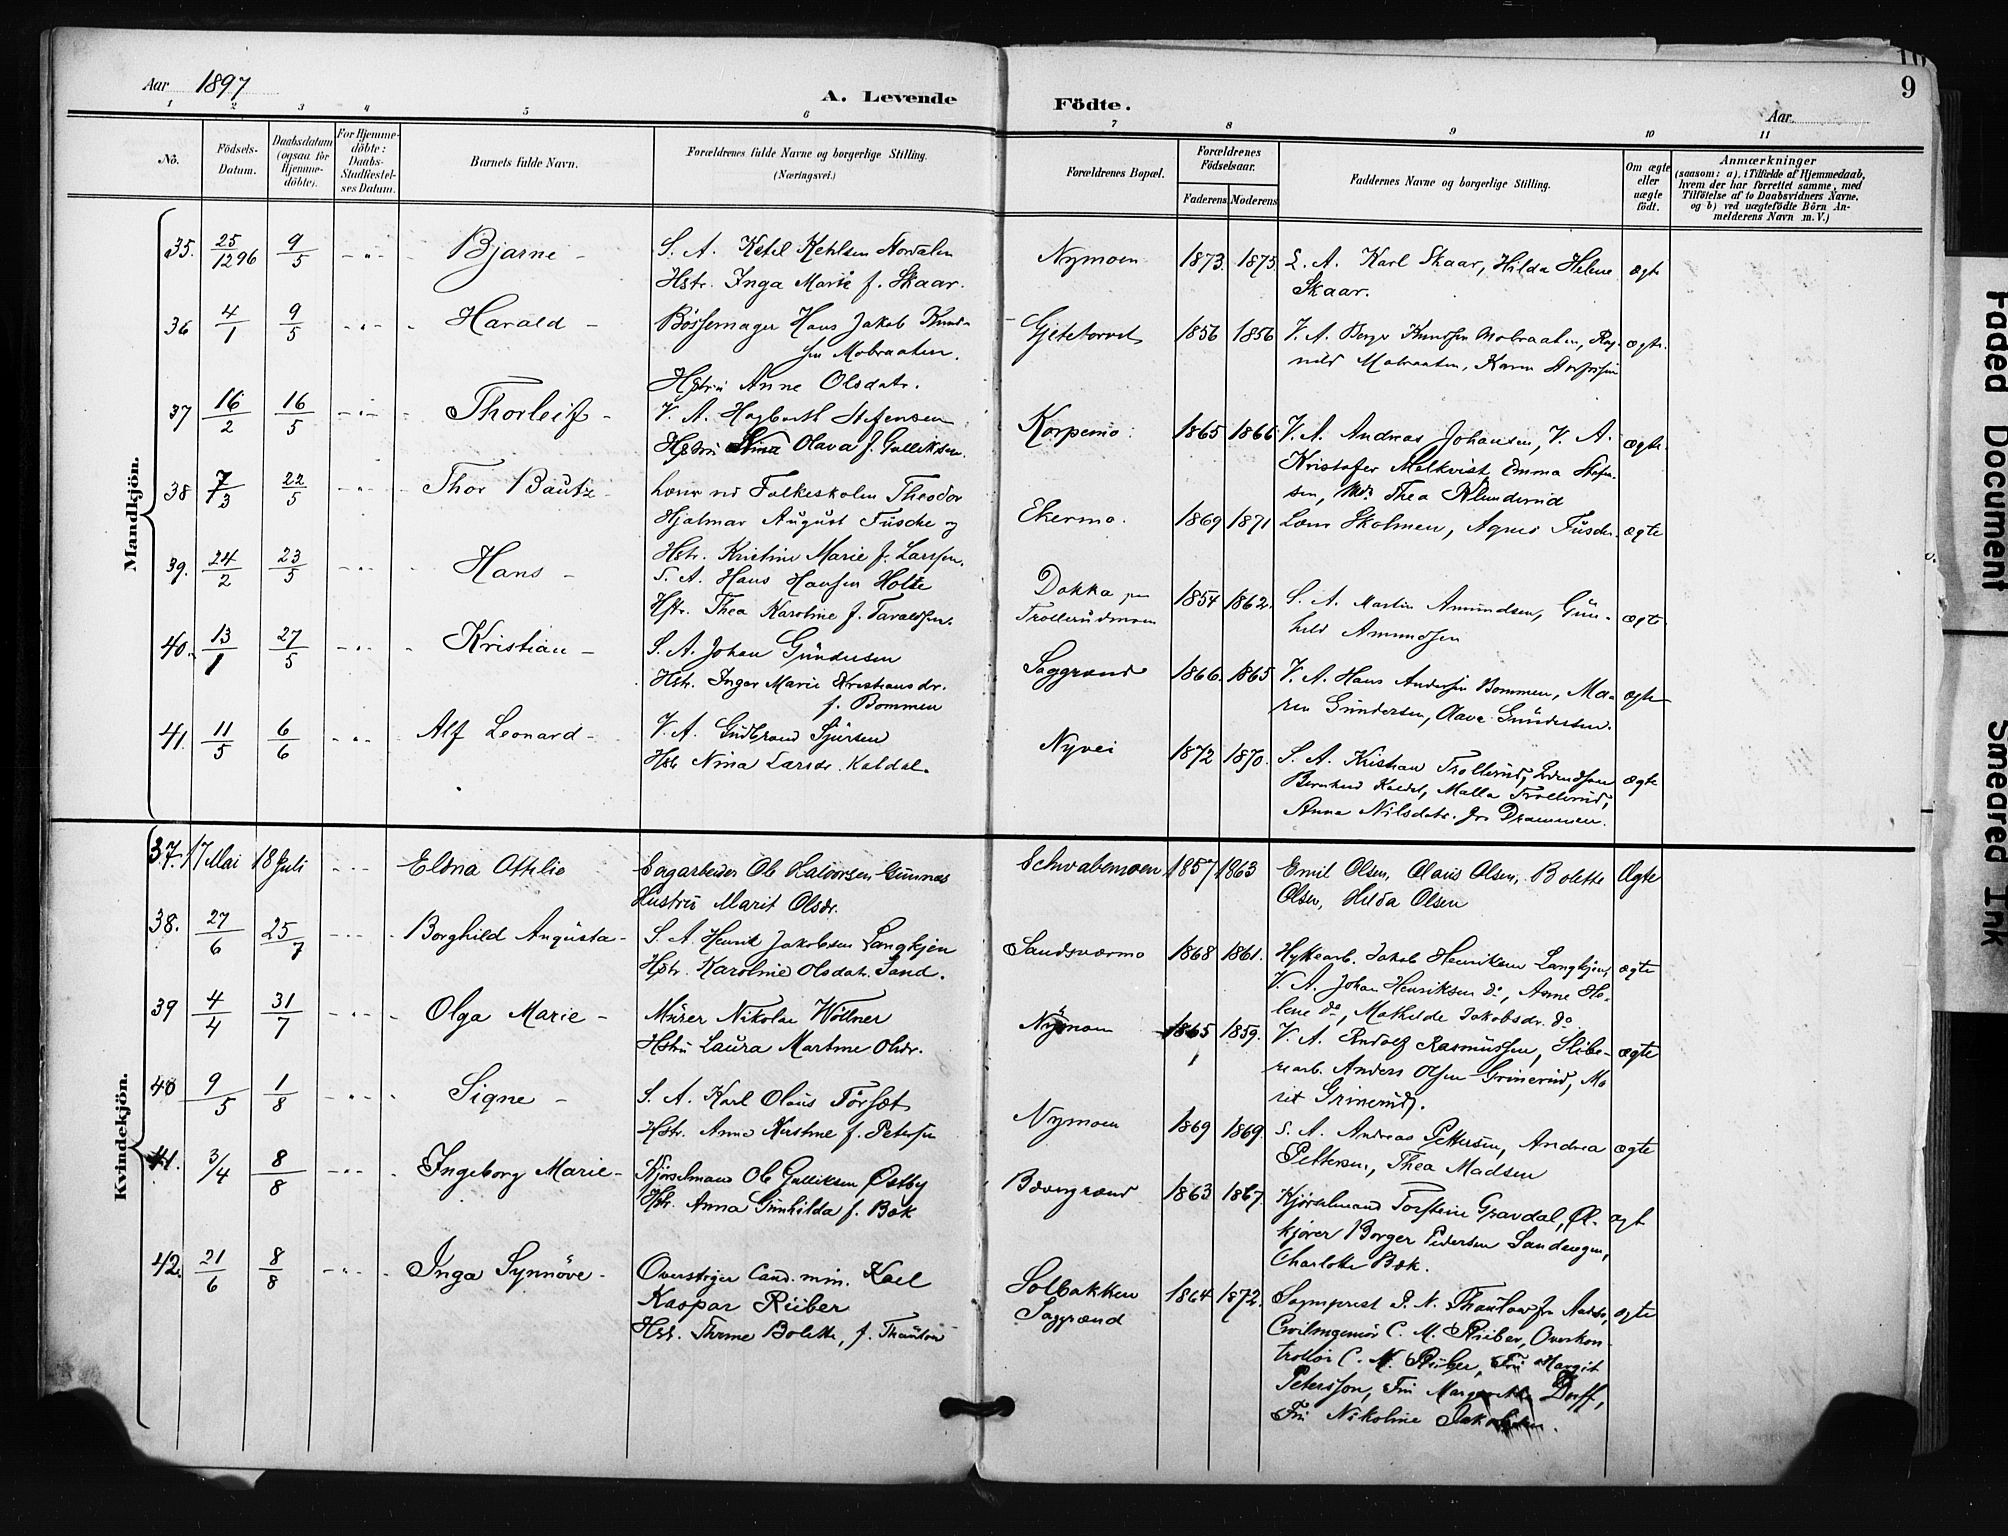 Aar 1897
A. Levende Födte.
Aar
9
1 2 3 4 5 6 7 8 9 10 11
No.
Födsels-Datum.
Daabsdatum (ogsaa for Hjemme-döbte).
For Hjemme-döbte: Daabs-Stadfæstel-ses Datum.
Barnets fulde Navn.
Forældrenes fulde Navne og borgerlige Stilling.
(Næringsvei.)
Forældrenes Bopæl.
Forældrenes Födselsaar.
Faderens Moderens
Faddernes Navne og borgerlige Stilling.
Om ægte eller uægte født.
Anmærkninger
(saasom: a). i Tilfælde af Hjemmedaab,
hvem der har forrettet samme, med
Tilföielse af to Daabsvidners Navne.
og b) ved uægtefödte Börn An-
melderens Navn m. V.)
Mandkjön.
35. 25/1296 9/5 - " - Bjarne - S. A. Ketil Kehlsen
Hstr. Inga Marie f. Skaar.
Nymoen 1873. 1875 S. A. Karl Skaar, Hilda Helene
Skaar.
ægte
36 4/1 9/5 - " - Harald - Bössemager Hans Jakob Knud-
sen Mobraaten.
Hstru Anne Olsdatr.
Gjetetorvet 1856 1856 V. A. Berger Knudsen Mobraaten, Rag-
nild Mobraaten, Karen
ægte.
37 16/2 16/5 - " - Thorleif - V. A. Hagbarth Stefensen
Hstru Nina Olava f. Gulliksen.
Korpemo. 1865 1866 V. A. Andreas Johansen, V. A.
Kristofer Melkvist, Emma Stefen-
sen, Thea
ægte.
38 7/3 22/5 - " - Thor Bautz - Lærer ved Folkeskolen Theodor
Hjalmar August Fusche og
Hstr. Kristine Marie f. Larssen.
Ekermo. 1869 1871 Lærer Skolmen, Agnes Fusche.
ægte
39. 24/2 23/5 - " - Hans - S. A. Hans Hansen Holte
Hstr. Thea Karoline f. Taraldsen.
Dokka paa
Trollerudmoen
1854 1862. S. A. Martin Amundsen, Gun-
hild Amundsen
ægte
40. 13/1 27/5 - " - Kristian - S. A. Johan Gundersen
Hstr. Inger Marie Kristiansdr.
f. Bommen
Saggrend 1866. 1865 V. A. Hans Andersen Bommen, Ma-
ren Gundersen, Olava Gundersen.
ægte
41. 11/5 6/6 - " - Alf Leonard - V. A. Gudbrand Sjursen
Hst. Nina Larsdr. Kaldal.
Nyvei 1872 1870. S. A. Kristian Trollerud,
Bernhard Kaldal, Malla Trollerud,
Anna Nilsdatr. fra Drammen.
ægte
Kvindekjön.
37. 17 Mai 18 Juli - " - Eldna Ottilie Sagarbeider Ole Halvorsen Gunnes
Hustru Marit Olsdr.
Schwabemoen 1857 1863 Emil Olsen, Olaus Olsen, Bolette
Olsen, Hilda Olsen
Ægte
38. 27/6 25/7 - " - Borghild Augusta - S. A. Henrik Jakobsen Langkjen
Hstr. Karoline Olsdatr. Sand.
Sandsværmo 1868 1861. Hyttearb. Jakob Henriksen Langkjen,
V. A. Johan Henriksen do, Anne He-
lene do, Mathilde Jakobsdr. do
ægte
39 4/4 31/7 - " - Olga Marie - Murer Nikolai Wöllner
Hstru Laura Martine Olsdr.
Nymoen 1865 1859. V. A. Rudolf Rasmussen, Slibe-
riarb. Anders Olsen Grinerud, Ma-
rit Grinerud.
ægte
40 9/5 1/8 - " - Signe - S. A. Karl Olaus
Hstr. Anne Kirstine f. Petersen
Nymoen 1869 1869. S. A. Andreas Pettersen, Andrea
Pettersen, Thea Madsen
ægte
41. 3/4 8/8 - " - Ingeborg Marie - Kjörselmand Ole Gulliksen Østby
Hstr. Anna Gunhilda f. Bak
Bævergrend 1863 1867. Kjörselmand Torstein Gravdal, Øl-
kjører Borger Pedersen
Charlotte Bak.
ægt
42. 21/6 8/8 - " - Inga Synnöve - Overstiger Cand. min. Karl
Kaspar Riiber
Hstr. Thrine Bolette, f. Thaulow
Solbakken
Saggrend
1864 1872. Sogneprest P. N. Thaulow fra
Civilingeniör C. M. Riiber, Overkon-
trollör C. M. Riiber, Fru Margit
Peterssen, Fru Margrethe Dorff,
Fru Nikoline Jakobsen.
ægte
Faded Document
Smeared Ink